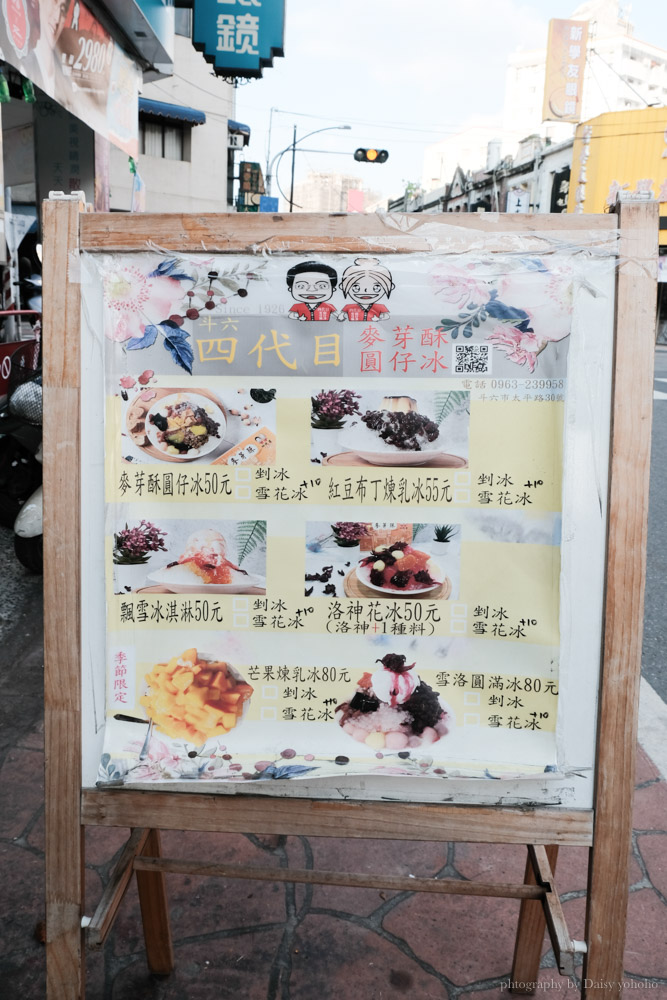 鏡
2980
新學友眼鏡
Since 1920
斗六
四代目
麥芽酥
圓仔冰
電話 0963-239958
斗六市太平路30號
麥芽酥圓仔冰50元
剉冰
雪花冰+10
紅豆布丁煉乳冰55元
剉冰
雪花冰+10
飄雪冰淇淋50元
剉冰
雪花冰+10
洛神花冰50元
(洛神+1種料)
剉冰
雪花冰+10
季節限定
芒果煉乳冰80元
剉冰
雪花冰+10
雪洛圓滿冰80元
剉冰
雪花冰+10
photography by Daisy yohoho